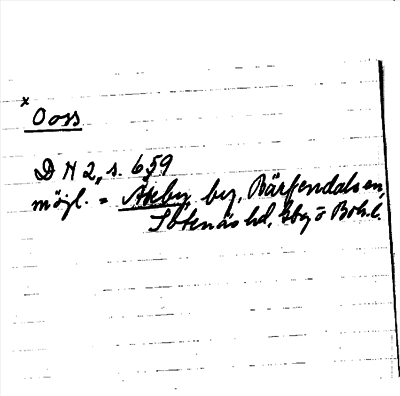 x
Ooss
D N 2, s. 659
möjl. = Åseby by, Bärfendals sn,
Sotenäs hd, Gbg o Boh. l.